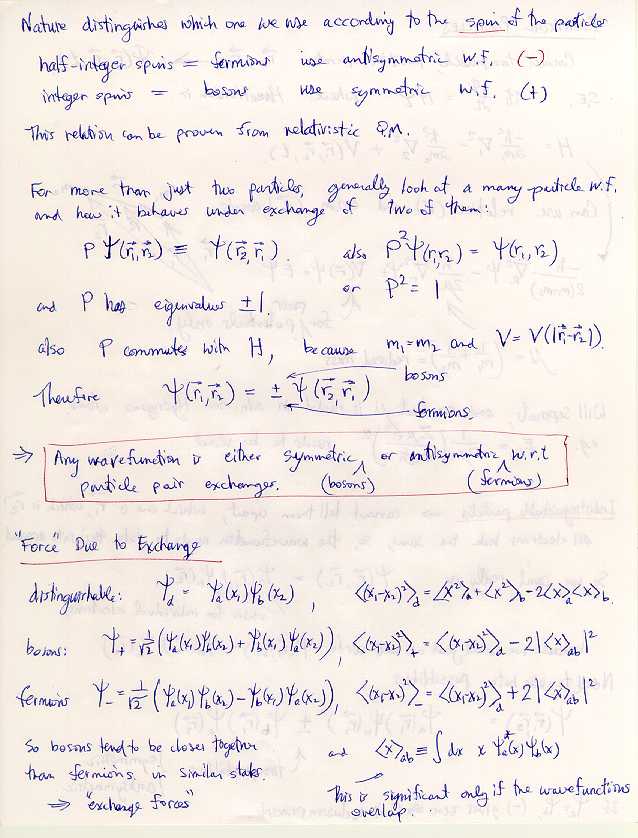 Nature distinguishes which one we use according to the spin of the particles
half-integer spins = fermions use antisymmetric w.f. (-)
integer spins = bosons use symmetric w.f. (+)
This relation can be proven from relativistic Q.M.
For more than just two particles, generally look at a many-particle w.f.
and how it behaves under exchange of two of them:
P Ψ(r⃗₁,r⃗₂) ≡ Ψ(r⃗₂,r⃗₁). also P²Ψ(r₁,r₂) = Ψ(r₁,r₂)
or P² = 1
and P has eigenvalues ±1.
also P commutes with H, because m₁=m₂ and V = V(|r⃗₁-r⃗₂|).
Therefore Ψ(r⃗₁,r⃗₂) = ± Ψ(r⃗₂,r⃗₁) bosons
fermions.
⇒ Any wavefunction is either symmetric or antisymmetric w.r.t
particle pair exchanges. (bosons) (fermions)
"Force" Due to Exchange
distinguishable: Ψ_d = Ψ_a(x₁)Ψ_b(x₂), ⟨(x₁-x₂)²⟩_d = ⟨x²⟩_a + ⟨x²⟩_b - 2⟨x⟩_a⟨x⟩_b.
bosons: Ψ₊ = 1/√2 (Ψ_a(x₁)Ψ_b(x₂) + Ψ_b(x₁)Ψ_a(x₂)), ⟨(x₁-x₂)²⟩₊ = ⟨(x₁-x₂)²⟩_d - 2|⟨x⟩_ab|²
fermions Ψ₋ = 1/√2 (Ψ_a(x₁)Ψ_b(x₂) - Ψ_b(x₁)Ψ_a(x₂)), ⟨(x₁-x₂)²⟩₋ = ⟨(x₁-x₂)²⟩_d + 2|⟨x⟩_ab|²
So bosons tend to be closer together and ⟨x⟩_ab ≡ ∫ dx x Ψ_a*(x)Ψ_b(x)
than fermions in similar states.
⇒ "exchange forces" This is significant only if the wavefunctions
overlap.